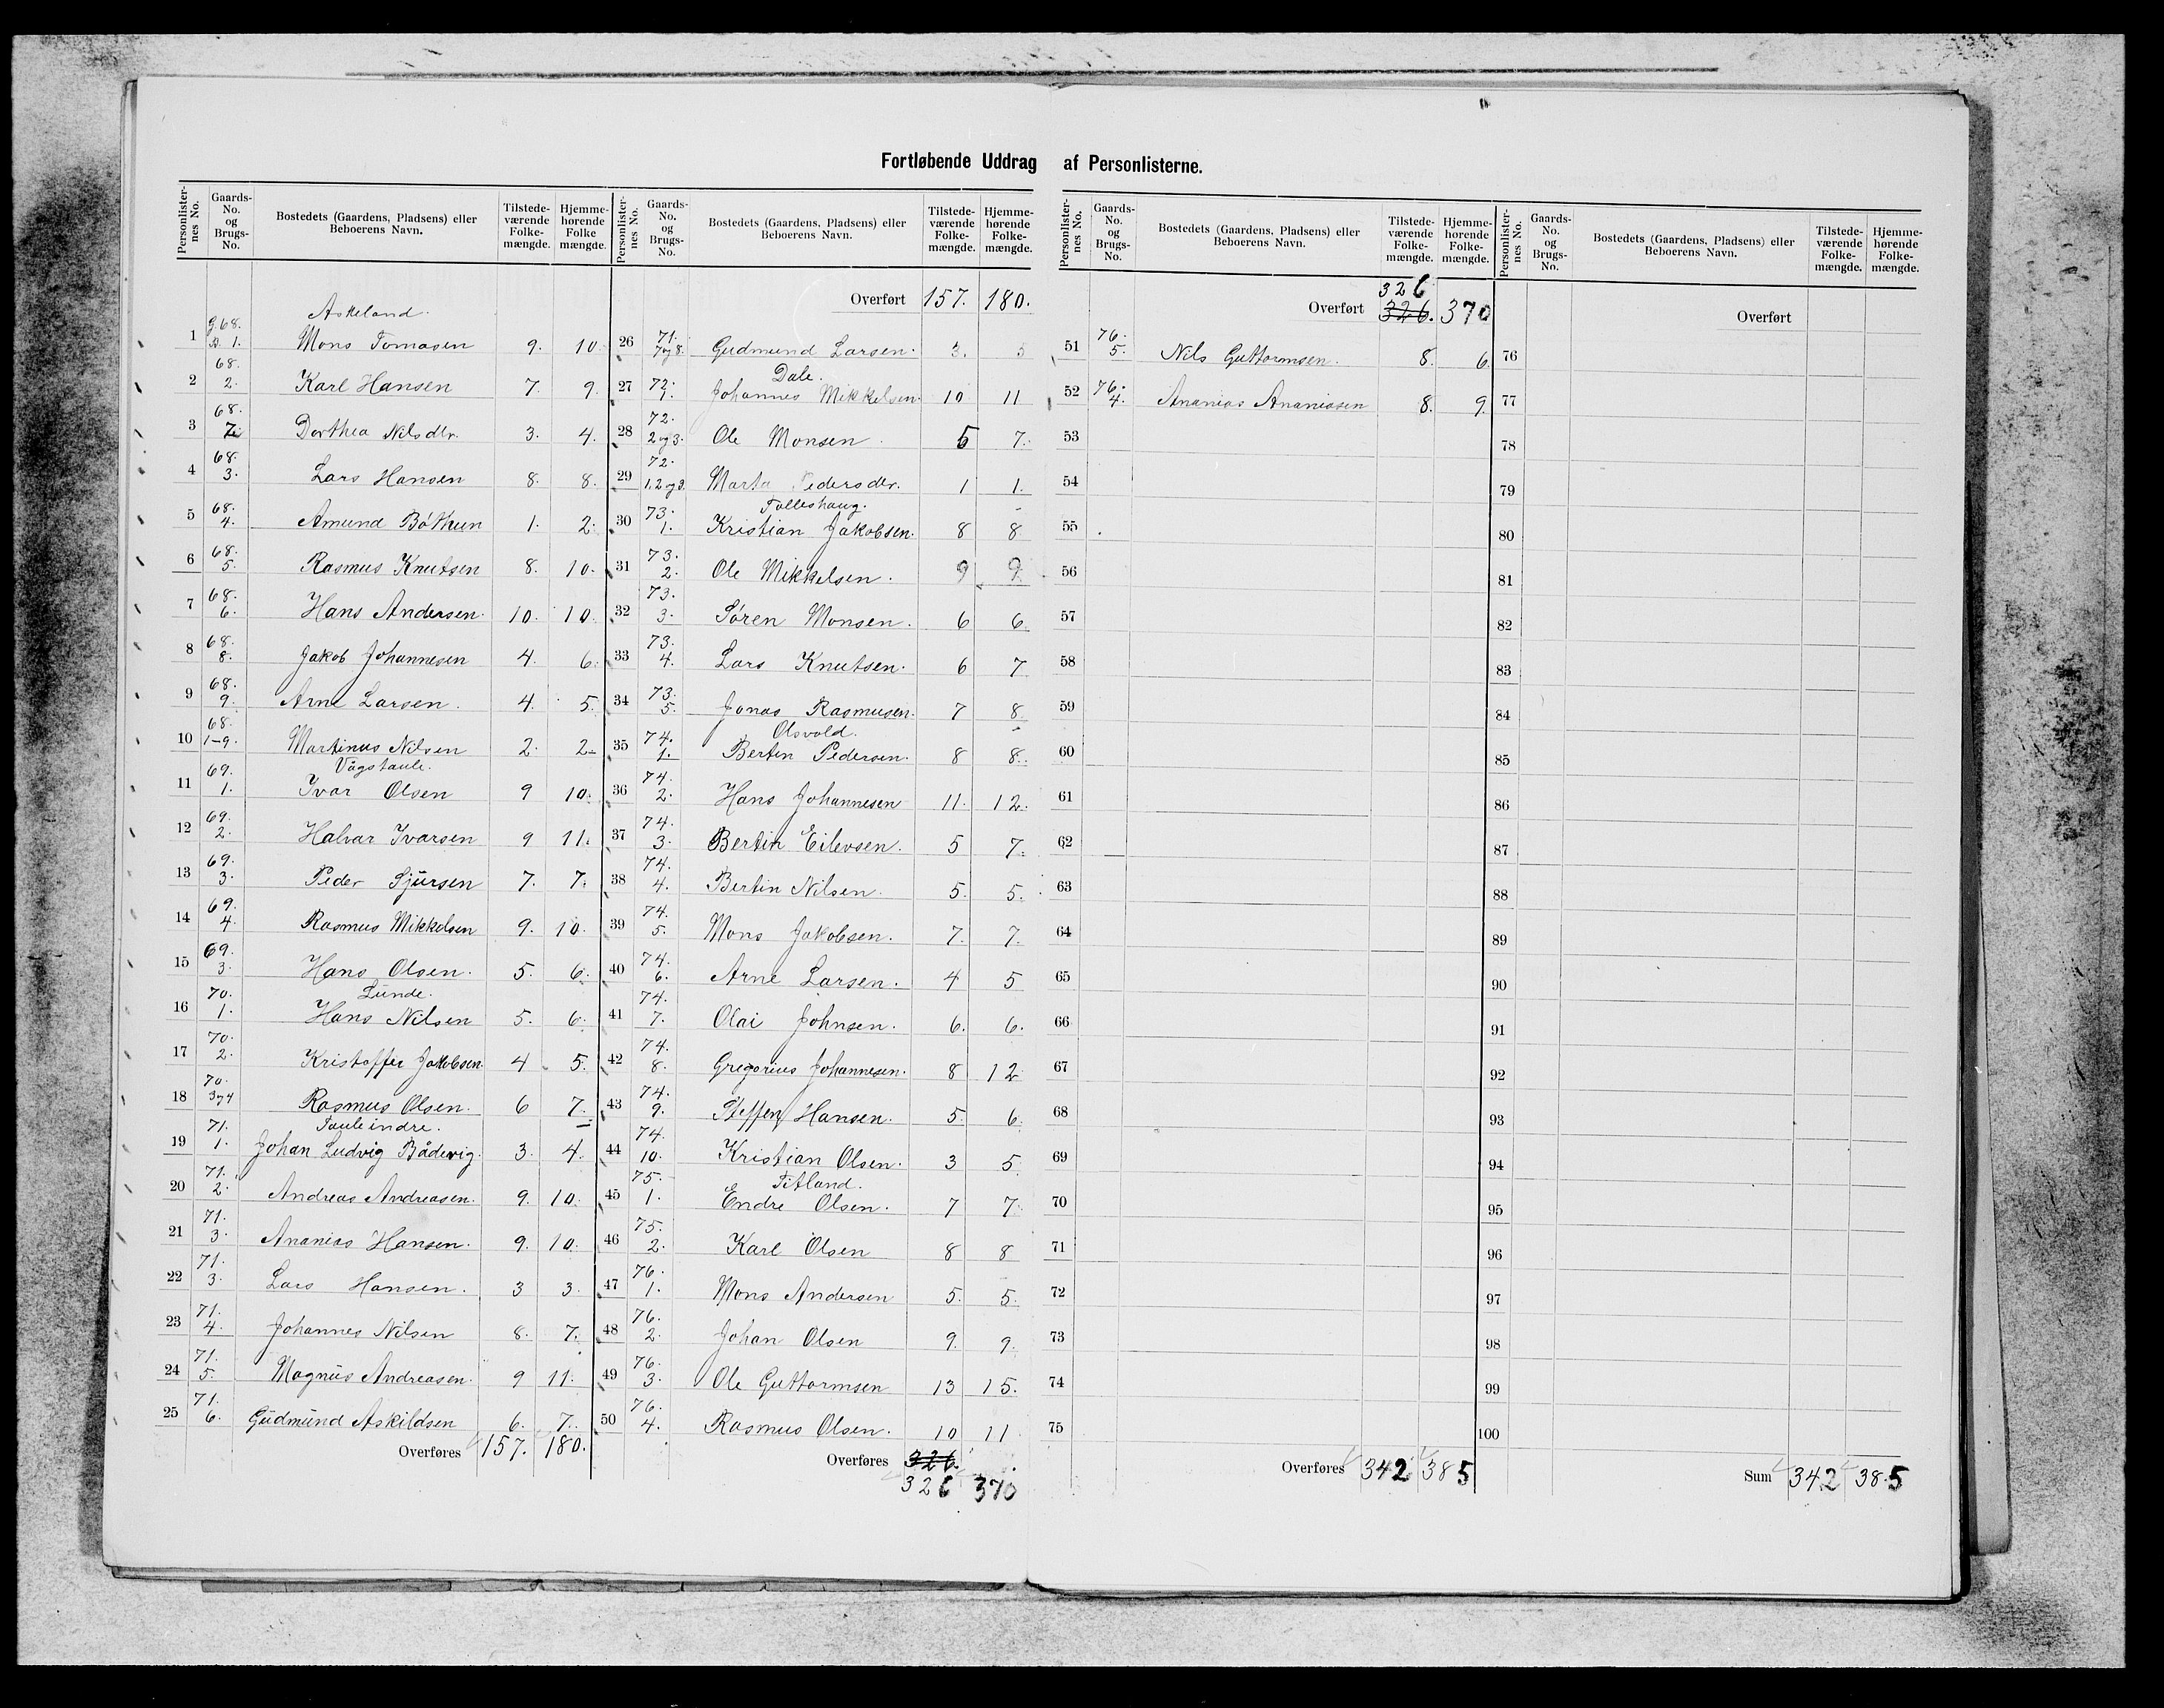 Fortløbende Uddrag af Personlisterne.
Personlister-nes No. | Gaards-No. og Brugs-No. | Bostedets (Gaardens, Pladsens) eller Beboerens Navn. | Tilstede-værende Folke-mængde. | Hjemme-hørende Folke mængde.
Askeland.
1 | g. 68. 1. | Mons Tomasen | 9. | 10.
2 | 68. 2. | Karl Hansen | 7. | 9.
3 | 68. | Dorthea Nilsdtr. | 3. | 4.
4 | 68. 3. | Lars Hansen | 8. | 8.
5 | 68. 4. | Amund Bóthun | 1. | 2.
6 | 68. 5. | Rasmus Knutsen | 8. | 10.
7 | 68. 6. | Hans Andersen. | 10. | 10.
8 | 68. 8. | Jakob Johannesen | 4. | 6.
9 | 68. 9. | Arne Larsen. | 4. | 5.
10 | 68. 1-9. | Martinus Nilsen | 2. | 2.
Vågstaule.
11 | 69. 1. | Ivar Olsen | 9 | 10.
12 | 69. 2. | Halvar Ivarsen | 9 | 11.
13 | 69. 3. | Peder Sjursen | 7. | 7.
14 | 69. 4. | Rasmus Mikkelsen | 9. | 10.
15 | 69. 3. | Hans Olsen. | 5. | 6.
Lunde.
16 | 70. 1. | Hans Nilsen | 5. | 6.
17 | 70. 2. | Kristoffer Jakobsen. | 4 | 5.
18 | 70. 3og4 | Rasmus Olsen. | 6 | 7.
Taule indre.
19 | 71. 1. | Johan Ludvig Bådevig. | 3. | 4.
20 | 71. 2. | Andreas Andreasen. | 9. | 10.
21 | 71. 3. | Ananias Hansen. | 9. | 10.
22 | 71. 3. | Lars Hansen. | 3 | 3.
23 | 71. 4. | Johannes Nilsen | 8. | 7.
24 | 71. 5. | Magnus Andreasen. | 9 | 11.
25 | 71. 6. | Gudmund Askildsen | 6. | 7.
Overføres 157. | 180.
Personlister-nes No. | Gaards-No. og Brugs-No. | Bostedets (Gaardens, Pladsens) eller Beboerens Navn. | Tilstede-værende Folke-mængde. | Hjemme-hørende Folke-mængde.
Overført 157. | 180.
26 | 71. 7og8. | Gudmund Larsen. | 3. | 5
Dale.
27 | 72. 1. | Johannes Mikkelsen. | 10 | 11
28 | 72. 2og3. | Ole Monsen. | 5 | 7.
29 | 72. 1.2og3. | Marta Pedersdtr. | 1 | 1.
Folleshaug.
30 | 73. 1. | Kristian Jakobsen. | 8 | 8
31 | 73. 2. | Ole Mikkelsen. | 9 | 9.
32 | 73. 3. | Søren Monsen. | 6 | 6.
33 | 73. 4. | Lars Knutsen. | 6 | 7
34 | 73. 5. | Jonas Rasmusen. | 7 | 8.
Olsvold.
35 | 74. 1. | Bertin Pedersen. | 8 | 8.
36 | 74. 2. | Hans Johannesen | 11. | 12.
37 | 74. 3. | Bertin Eilevsen. | 5 | 7.
38 | 74. 4. | Bertin Nilsen. | 5. | 5.
39 | 74. 5. | Mons Jakobsen. | 7. | 7.
40 | 74. 6. | Arne Larsen. | 4 | 5
41 | 74. 7. | Olai Johnsen. | 6. | 6.
42 | 74. 8. | Gregorius Johannesen. | 8 | 12
43 | 74. 9. | Steffen Hansen. | 5. | 6.
44 | 74. 10. | Kristian Olsen. | 3 | 5.
Titland.
45 | 75. 1. | Endre Olsen. | 7 | 7.
46 | 75. 2. | Karl Olsen | 8 | 8
47 | 76. 1. | Mons Andersen | 5. | 5.
48 | 76. 2. | Johan Olsen | 9. | 9.
49 | 76. 3. | Ole Guttormsen | 13 | 15.
50 | 76. 4. | Rasmus Olsen. | 10 | 11
Overføres 326.
326 | 370
Personlister-nes No. | Gaards-No. og Brugs-No. | Bostedets (Gaardens, Pladsens) eller Beboerens Navn. | Tilstede-værende Folke-mængde. | Hjemme-hørende Folke-mængde.
326
Overført 326. | 370
51 | 76. 5. | Nils Guttormsen. | 8. | 6.
52 | 76. 4. | Ananias Ananiasen | 8. | 9.
53
54
55
56
57
58
59
60
61
62
63
64
65
66
67
68
69
70
71
72
73
74
75
Overføres 342 | 385
Personlister-nes No. | Gaards-No. og Brugs-No. | Bostedets (Gaardens, Pladsens) eller Beboerens Navn. | Tilstede-værende Folke-mængde. | Hjemme-hørende Folke-mængde.
Overført
76
77
78
79
80
81
82
83
84
85
86
87
88
89
90
91
92
93
94
95
96
97
98
99
100
Sum 342 | 385